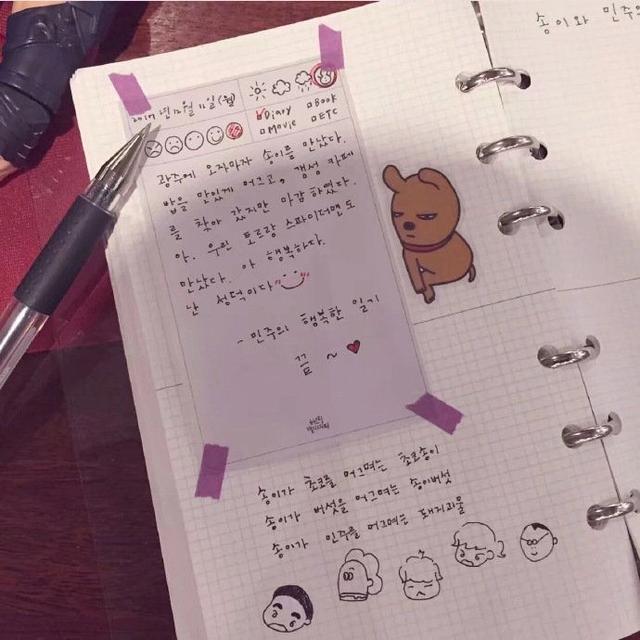 송이와 민주의
2017년 12월 11일 (월)
Diary Book
Movie ETC
광주에 오자마자 송이를 만났다.
밥을 맛있게 먹고, 갬성 카페
를 찾아 갔지만 마감하였다.
아, 우린 토르랑 스파이더맨도
만났다. 아 행복하다.
난 성덕이다
- 민주의 행복한 일기
끝 ~
송이가 초코를 먹으면 초코송이
송이가 버섯을 먹으면 송이버섯
송이가 민주를 먹으면 돼지괴물